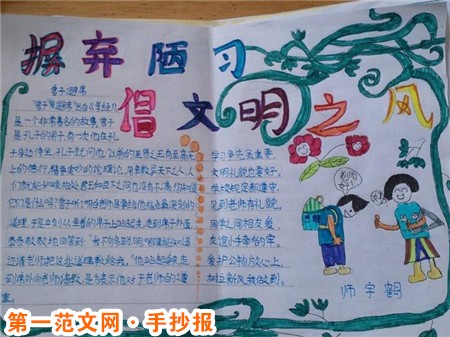 握弃陋习
倡文明之风
曾子避席
"曾子避席"出自《孝经》,
是一个非常著名的故事,曾子
是孔子的弟子,有一次他在孔
子身边侍坐,孔子就问他:"以前的圣贤之王有至高无
上的德行,精要奥妙的理论,用来教导天下之人,人
们就能和睦相处,君王和臣下之间也没有不满,你知道
它们是什么吗?"曾子听了,明白老师是要指点他最深刻的
道理,于是立刻从坐着的席子上站起来,走到席子外面,
恭恭敬敬地回答到:"我不够聪明,哪里能知道,
还请老师把这些道理教给我。"
学习争先
文明礼貌也要好。
学校规定都遵守,
见到老师有礼貌。
同学之间相亲爱,
友谊小手牵的牢。
爱护公物放心上,
老师
好!
你
好
师宇鹤
第一范文网·手抄报